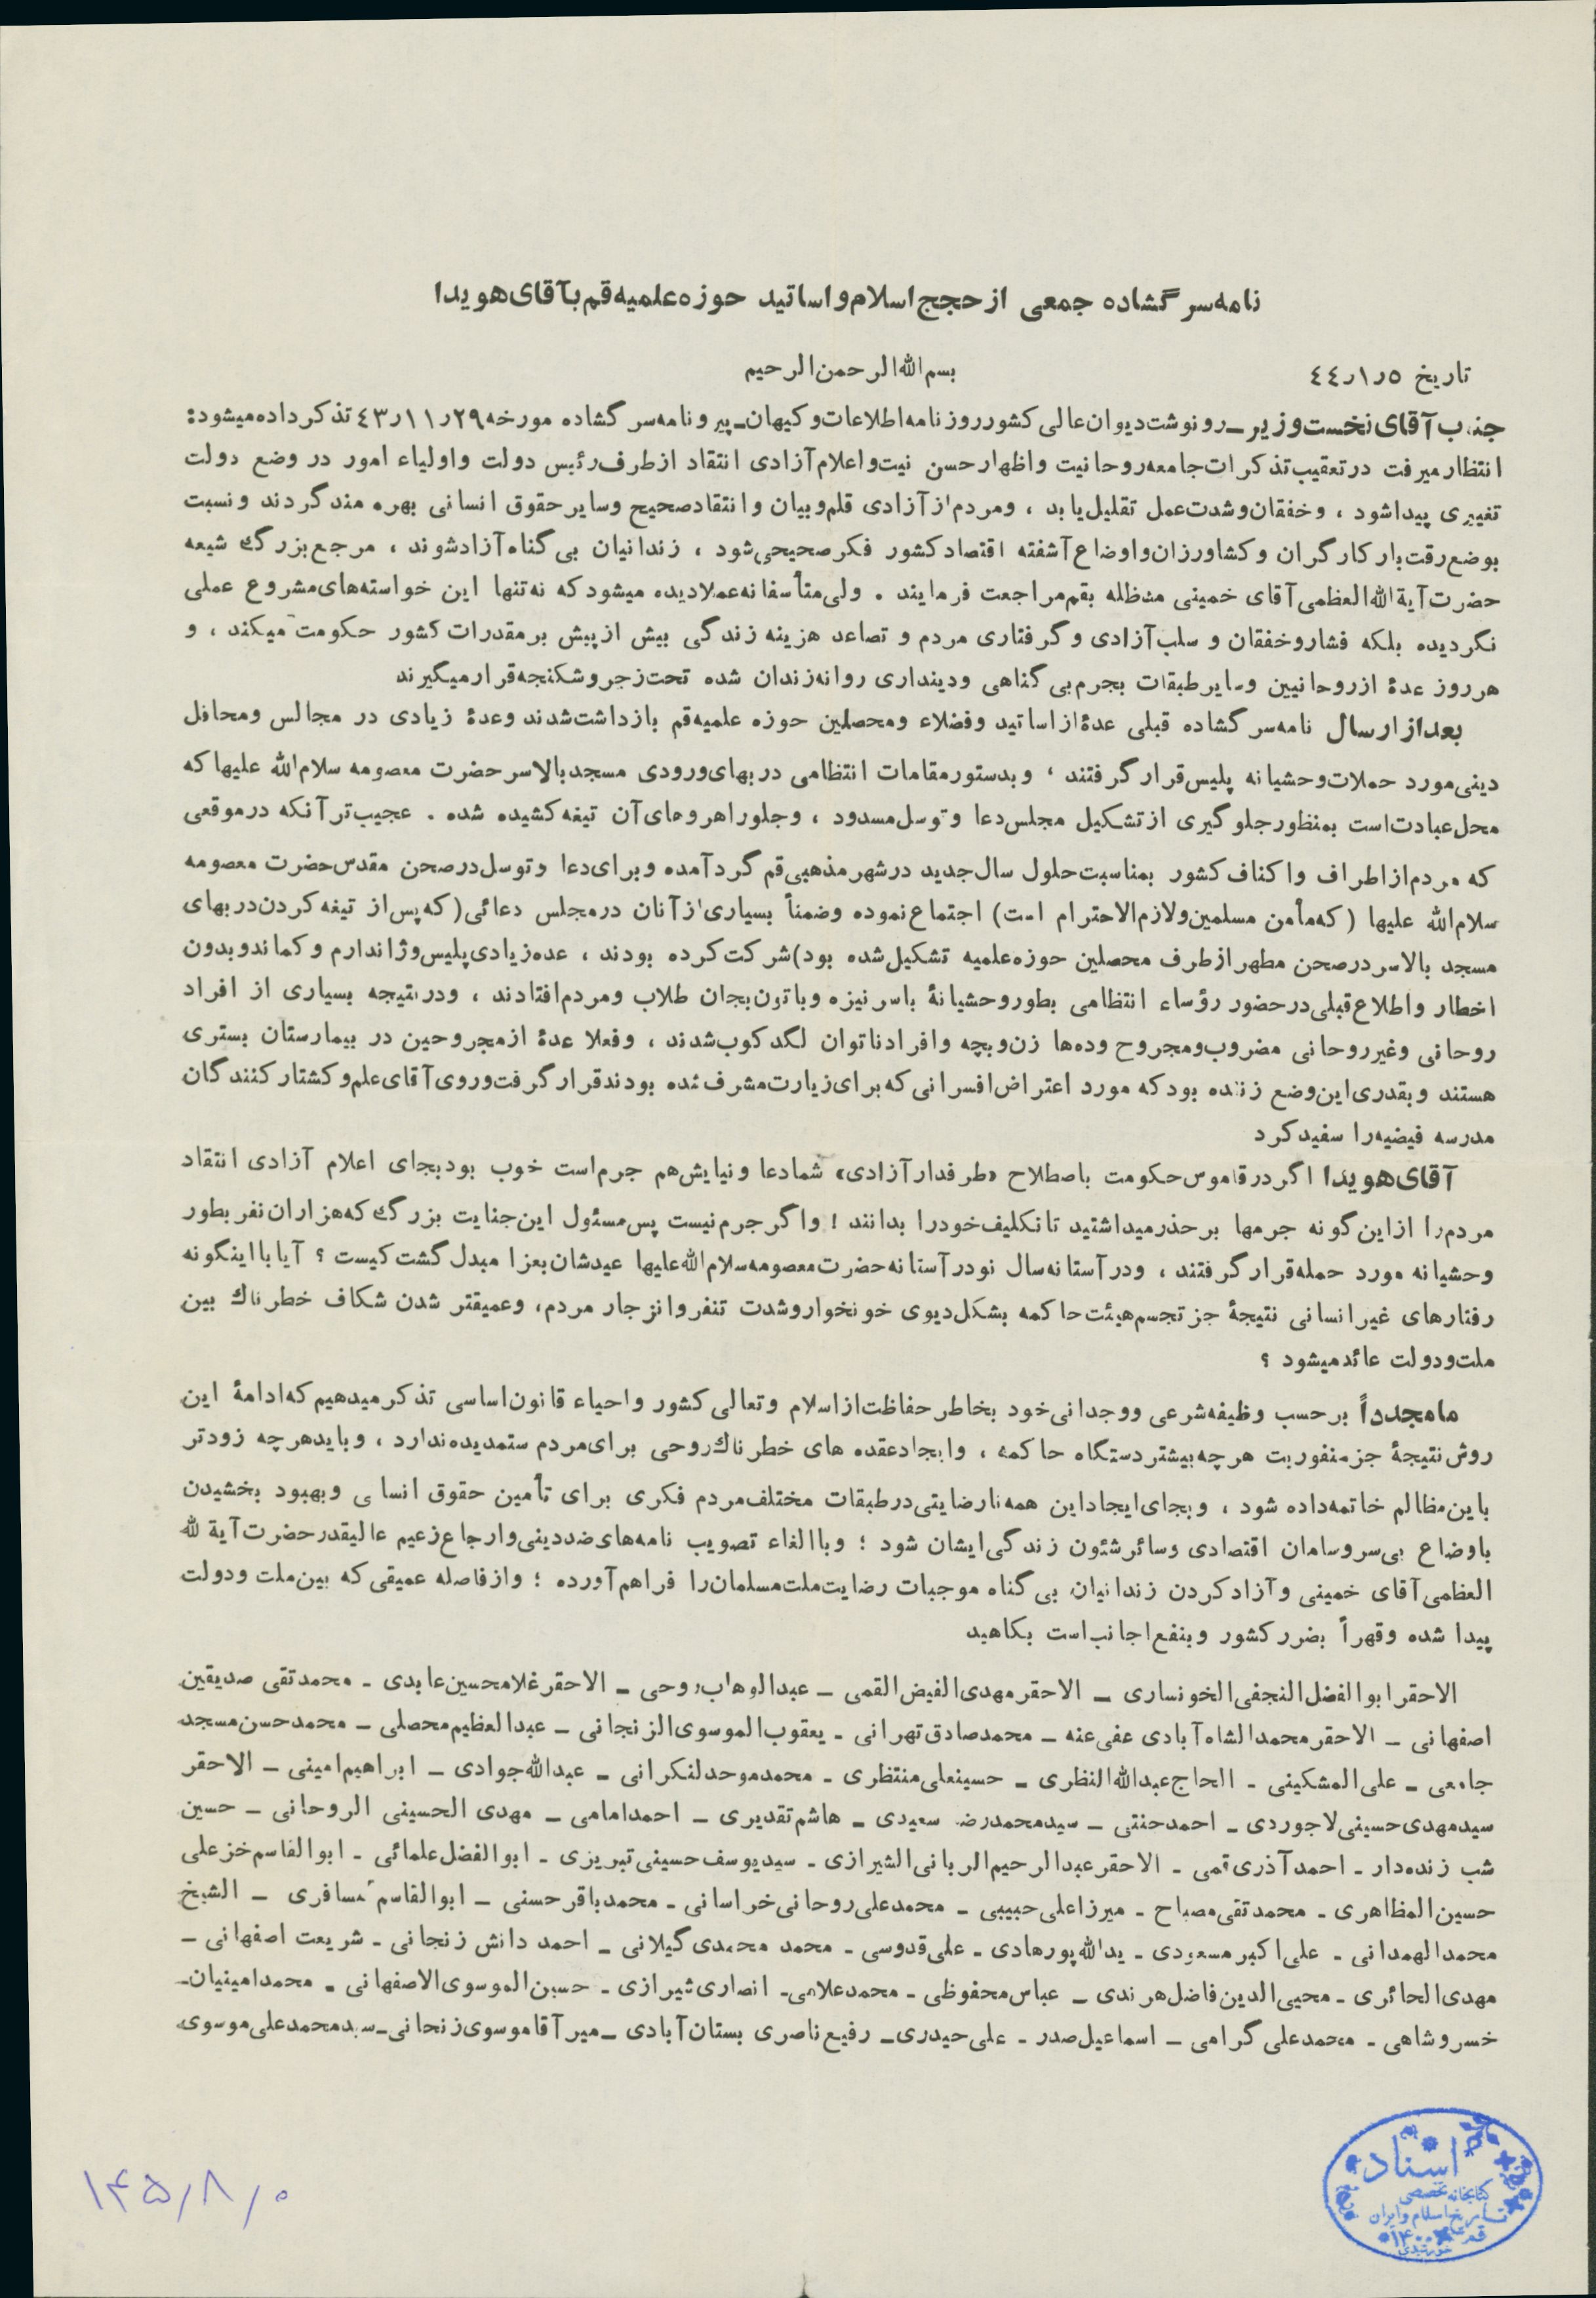 نامه‌سرگشاده جمعی از حجج‌اسلام‌و‌اساتید حوزه‌علمیه‌قم‌بآقای‌هویدا
تاریخ ٤٤ر١ر٥ بسم‌الله‌الرحمن‌الرحیم
جناب آقای نخست‌وزیر ـ رونوشت دیوان عالی کشور روزنامه اطلاعات و کیهان ـ پیرو نامه سرگشاده مورخه ٤٣ر١١ر٢٩ تذکر داده میشود:
انتظار میرفت در تعقیب تذکرات جامعه روحانیت و اظهار حسن نیت و اعلام آزادی انتقاد از طرف رئیس دولت و اولیاء امور در وضع دولت
تغییری پیدا شود ، و خفقان و شدت عمل تقلیل یابد ، و مردم از آزادی قلم و بیان و انتقاد صحیح و سایر حقوق انسانی بهره مند گردند و نسبت
بوضع رقت بار کارگران و کشاورزان و اوضاع آشفته اقتصاد کشور فکر صحیحی شود ، زندانیان بی گناه آزاد شوند ، مرجع بزرگ شیعه
حضرت آیة الله العظمی آقای خمینی مدظله بقم مراجعت فرمایند . ولی متأسفانه عملا دیده میشود که نه تنها این خواسته های مشروع عملی
نگردیده بلکه فشار و خفقان و سلب آزادی و گرفتاری مردم و تصاعد هزینه زندگی بیش از پیش بر مقدرات کشور حکومت میکند ، و
هر روز عدهٔ از روحانیین و سایر طبقات بجرم بی گناهی و دینداری روانه زندان شده تحت زجر و شکنجه قرار میگیرند
بعد از ارسال نامه سرگشاده قبلی عدهٔ از اساتید و فضلاء و محصلین حوزه علمیه قم بازداشت شدند و عدهٔ زیادی در مجالس و محافل
دینی مورد حملات وحشیانه پلیس قرار گرفتند ، و بدستور مقامات انتظامی دربهای ورودی مسجد بالاسر حضرت معصومه سلام الله علیها که
محل عبادت است بمنظور جلوگیری از تشکیل مجلس دعا و توسل مسدود ، و جلو راهروهای آن تیغه کشیده شده . عجیب تر آنکه در موقعی
که مردم از اطراف و اکناف کشور بمناسبت حلول سال جدید در شهر مذهبی قم گرد آمده و برای دعا و توسل در صحن مقدس حضرت معصومه
سلام الله علیها (که مأمن مسلمین و لازم الاحترام است) اجتماع نموده و ضمناً بسیاری از آنان در مجلس دعائی (که پس از تیغه کردن دربهای
مسجد بالاسر در صحن مطهر از طرف محصلین حوزه علمیه تشکیل شده بود) شرکت کرده بودند ، عده زیادی پلیس و ژاندارم و کماندو بدون
اخطار و اطلاع قبلی در حضور رؤساء انتظامی بطور وحشیانهٔ با سرنیزه و باتون بجان طلاب و مردم افتادند ، و در نتیجه بسیاری از افراد
روحانی و غیر روحانی مضروب و مجروح و ده‌ها زن و بچه و افراد ناتوان لگد کوب شدند ، و فعلا عدهٔ از مجروحین در بیمارستان بستری
هستند و بقدری این وضع زننده بود که مورد اعتراض افسرانی که برای زیارت مشرف شده بودند قرار گرفت و روی آقای علم و کشتار کنندگان
مدرسه فیضیه را سفید کرد
آقای هویدا اگر در قاموس حکومت باصطلاح «طرفدار آزادی» شما دعا و نیایش هم جرم است خوب بود بجای اعلام آزادی انتقاد
مردم را از این گونه جرمها بر حذر میداشتید تا تکلیف خود را بدانند ! و اگر جرم نیست پس مسئول این جنایت بزرگ که هزاران نفر بطور
وحشیانه مورد حمله قرار گرفتند ، و در آستانه سال نو در آستانه حضرت معصومه سلام الله علیها عیدشان بعزا مبدل گشت کیست ؟ آیا با اینگونه
رفتارهای غیر انسانی نتیجهٔ جز تجسم هیئت حاکمه بشکل دیوی خونخوار و شدت تنفر و انزجار مردم، و عمیقتر شدن شکاف خطرناك بین
ملت و دولت عائد میشود ؟
ما مجدداً بر حسب وظیفه شرعی و وجدانی خود بخاطر حفاظت از اسلام و تعالی کشور و احیاء قانون اساسی تذکر میدهیم که ادامهٔ این
روش نتیجهٔ جز منفوریت هر چه بیشتر دستگاه حاکمه ، و ایجاد عقده های خطرناك روحی برای مردم ستمدیده ندارد ، و باید هر چه زودتر
باین مظالم خاتمه داده شود ، و بجای ایجاد این همه نارضایتی در طبقات مختلف مردم فکری برای تأمین حقوق انسانی و بهبود بخشیدن
باوضاع بی سر و سامان اقتصادی و سائر شئون زندگی ایشان شود ؛ و با الغاء تصویب نامه های ضد دینی و ارجاع زعیم عالیقدر حضرت آیة لله
العظمی آقای خمینی و آزاد کردن زندانیان بی گناه موجبات رضایت ملت مسلمان را فراهم آورده ؛ و از فاصله عمیقی که بین ملت و دولت
پیدا شده و قهراً بضرر کشور و بنفع اجانب است بکاهید
الاحقر ابوالفضل النجفی الخونساری ـ الاحقر مهدی الفیض القمی ـ عبدالوهاب روحی ـ الاحقر غلامحسین عابدی ـ محمد تقی صدیقین
اصفهانی ـ الاحقر محمد الشاه آبادی عفی عنه ـ محمد صادق تهرانی ـ یعقوب الموسوی الزنجانی ـ عبدالعظیم محصلی ـ محمد حسن مسجد
جامعی ـ علی المشکینی ـ الحاج عبدالله النظری ـ حسینعلی منتظری ـ محمد موحد لنکرانی ـ عبدالله جوادی ـ ابراهیم امینی ـ الاحقر
سید مهدی حسینی لاجوردی ـ احمد جنتی ـ سید محمد رضا سعیدی ـ هاشم تقدیری ـ احمد امامی ـ مهدی الحسینی الروحانی ـ حسین
شب زنده دار ـ احمد آذری قمی ـ الاحقر عبدالرحیم الربانی الشیرازی ـ سید یوسف حسینی تبریزی ـ ابوالفضل علمائی ـ ابوالقاسم خزعلی
حسین المظاهری ـ محمد تقی مصباح ـ میرزا علی حبیبی ـ محمد علی روحانی خراسانی ـ محمد باقر حسنی ـ ابوالقاسم مسافری ـ الشیخ
محمد الهمدانی ـ علی اکبر مسعودی ـ یدالله پورهادی ـ علی قدوسی ـ محمد محمدی گیلانی ـ احمد دانش زنجانی ـ شریعت اصفهانی ـ
مهدی الحائری ـ محیی الدین فاضل هرندی ـ عباس محفوظی ـ محمد علامی ـ انصاری شیرازی ـ حسین الموسوی الاصفهانی ـ محمد امینیان ـ
خسروشاهی ـ محمد علی گرامی ـ اسماعیل صدر ـ علی حیدری ـ رفیع ناصری بستان آبادی ـ میر آقا موسوی زنجانی ـ سید محمد علی موسوی
اسناد
کتابخانه تخصصی
تاریخ اسلام و ایران
قم
۱۴۰۰
۱۴۵/۸/۰